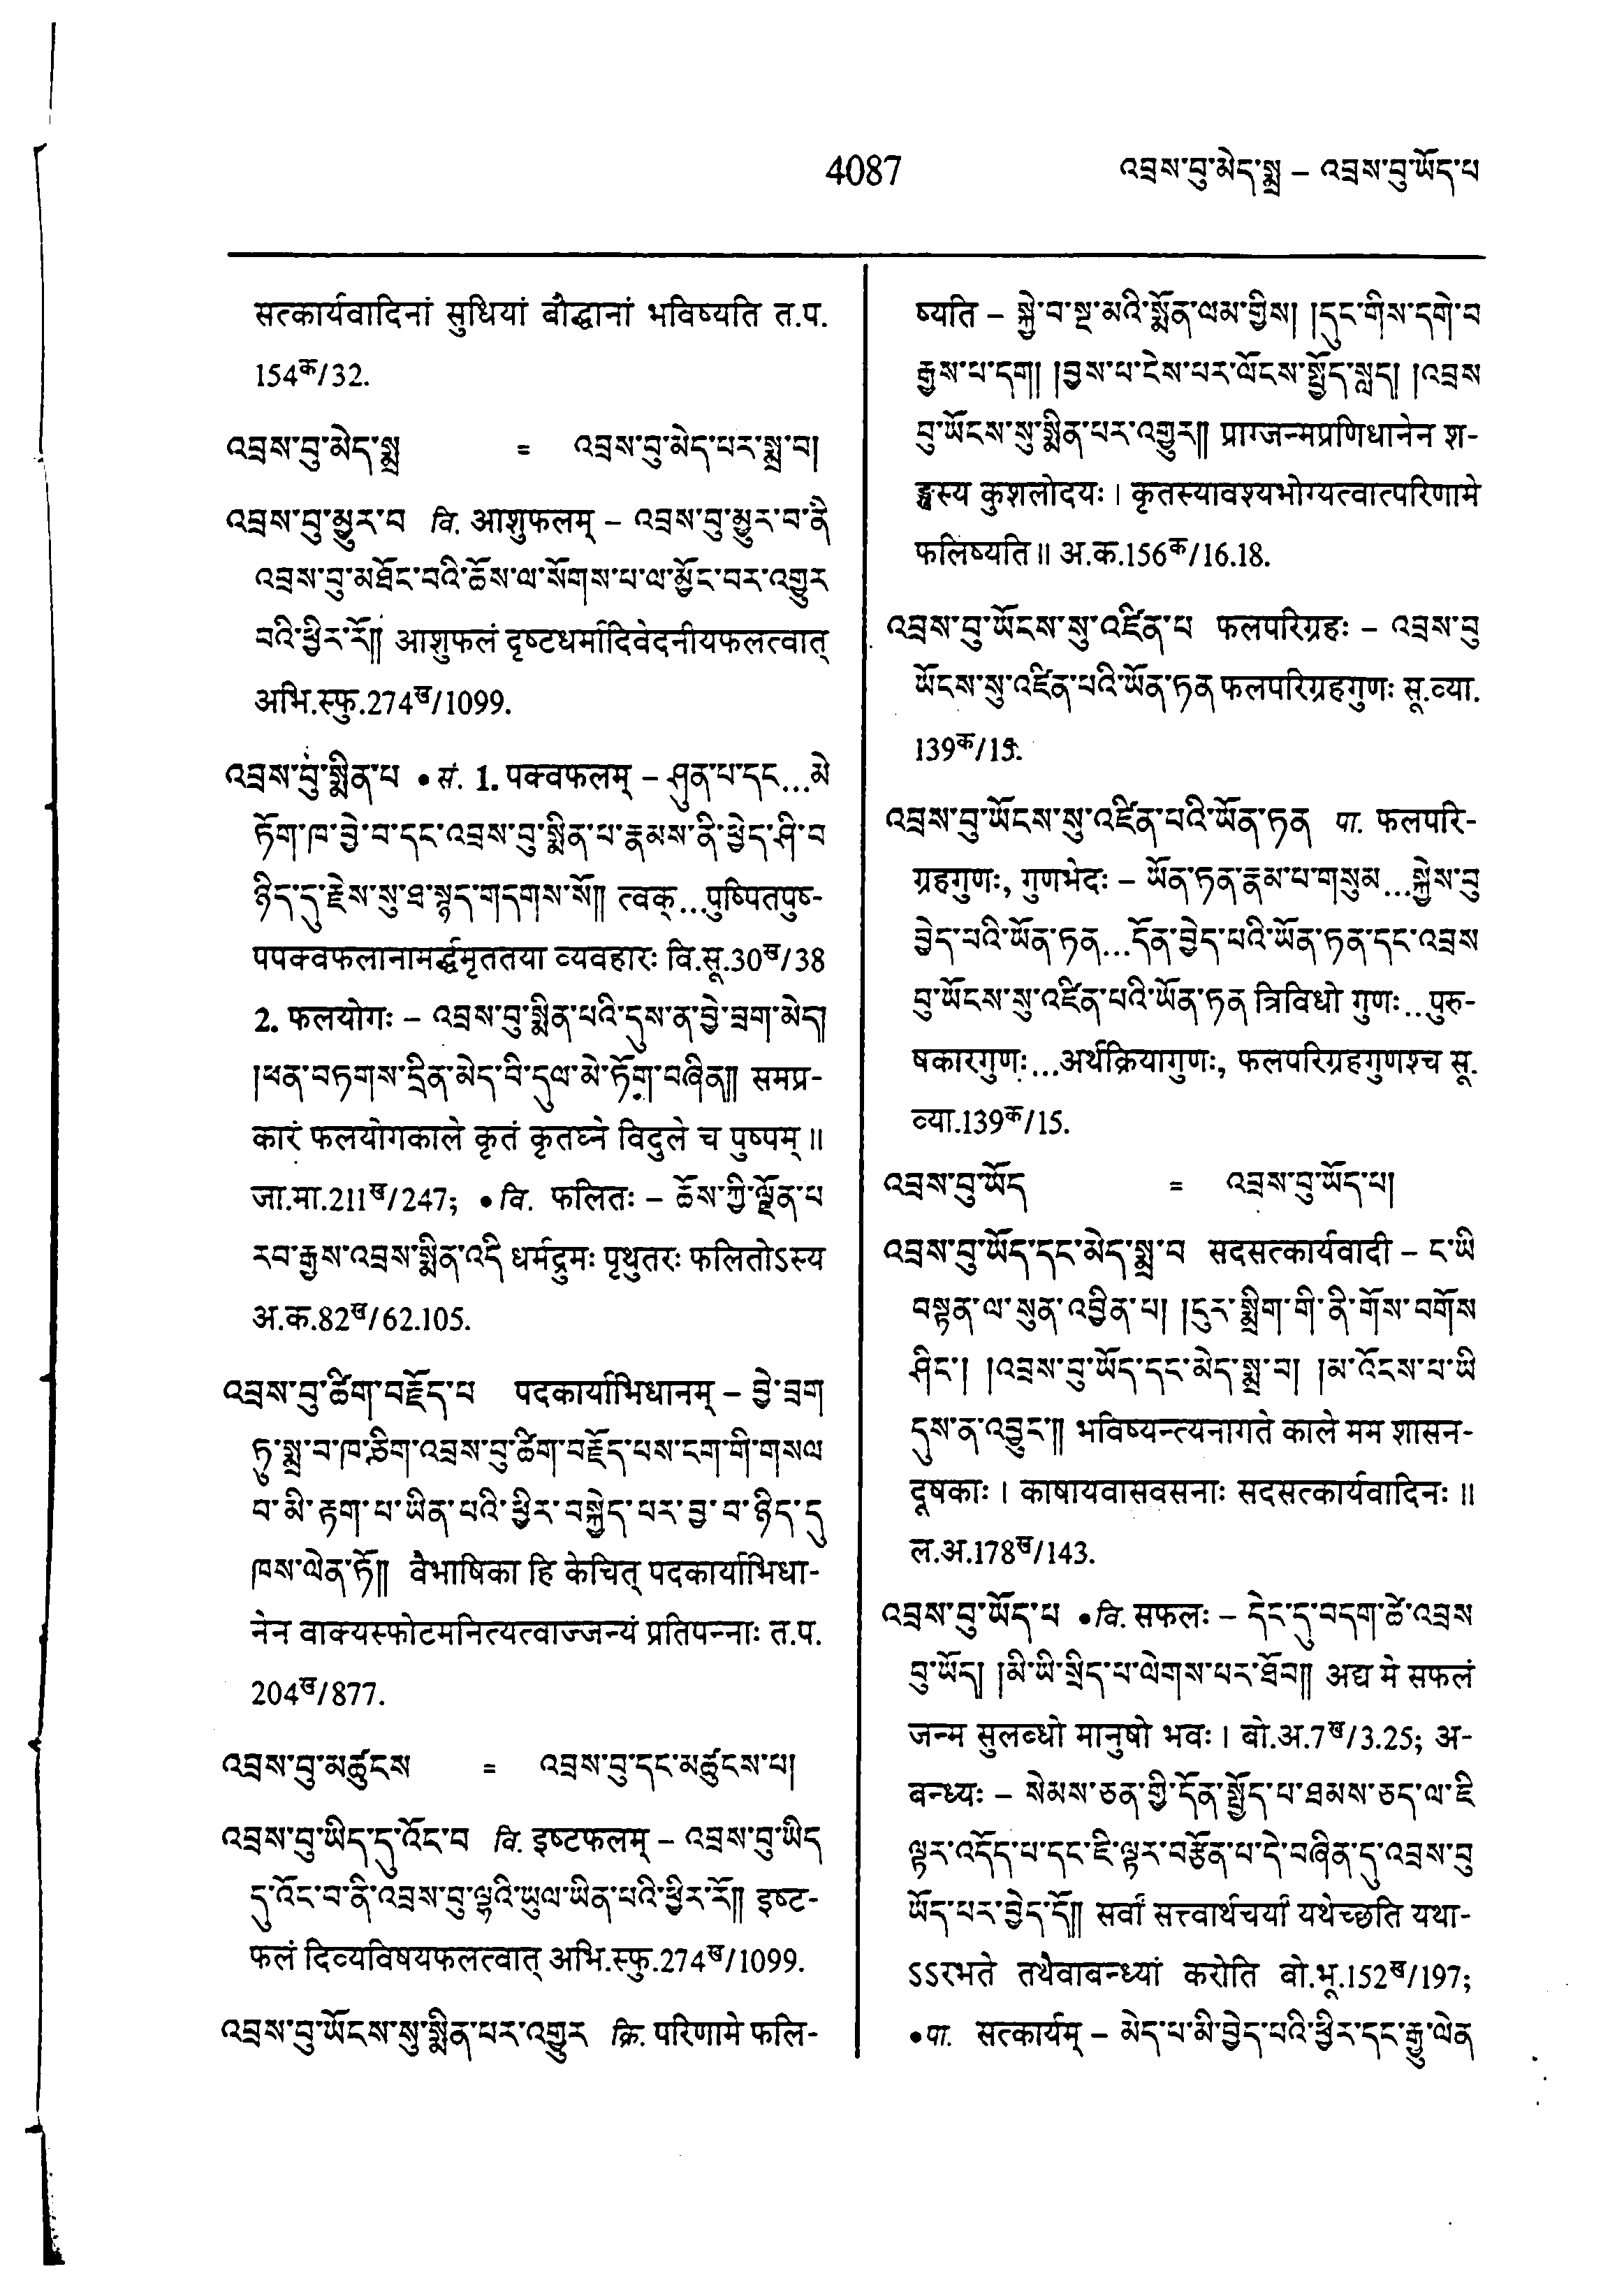 4087
འབྲས་བུ་མེད་སྨྲ – འབྲས་བུ་ཡོད་པ
सत्कार्यवादिनां सुधियां बौद्धानां भविष्यति त.प.
154क/32.
འབྲས་བུ་མེད་སྨྲ = འབྲས་བུ་མེད་པར་སྨྲ་བ།
འབྲས་བུ་མྱུར་བ वि. आशुफलम् – འབྲས་བུ་མྱུར་བ་ནི
འབྲས་བུ་མཐོང་བའི་ཆོས་ལ་སོགས་པ་ལ་མྱོང་བར་འགྱུར
བའི་ཕྱིར་རོ།། आशुफलं दृष्टधर्मादिवेदनीयफलत्वात्
अभि.स्फु.274ख/1099.
འབྲས་བུ་སྨིན་པ • सं. 1. पक्वफलम् – ཤུན་པ་དང...མེ
ཏོག་ཁ་བྱེ་བ་དང་འབྲས་བུ་སྨིན་པ་རྣམས་ནི་ཕྱེད་ཤི་བ
ཉིད་དུ་རྗེས་སུ་ཐ་སྙད་གདགས་སོ།། त्वक्...पुष्पितपुष्-
पपक्वफलानामर्द्धमृततया व्यवहारः वि.सू.30ख/38
2. फलयोगः – འབྲས་བུ་སྨིན་པའི་དུས་ན་བྱེ་བྲག་མེད།
།ཕན་བཏགས་དྲིན་མེད་བི་དུལ་མེ་ཏོག་བཞིན།། समप्र-
कारं फलयोगकाले कृतं कृतघ्ने विदुले च पुष्पम् ॥
जा.मा.211ख/247; • वि. फलितः – ཆོས་ཀྱི་ལྗོན་པ
རབ་རྒྱས་འབྲས་སྨིན་འདི धर्मद्रुमः पृथुतरः फलितोऽस्य
अ.क.82ख/62.105.
འབྲས་བུ་ཚིག་བརྗོད་པ पदकार्याभिधानम् – བྱེ་བྲག
ཏུ་སྨྲ་བ་ཁ་ཅིག་འབྲས་བུ་ཚིག་བརྗོད་པས་ངག་གི་གསལ
བ་མི་རྟག་པ་ཡིན་པའི་ཕྱིར་བསྐྱེད་པར་བྱ་བ་ཉིད་དུ
ཁས་ལེན་ཏོ།། वैभाषिका हि केचित् पदकार्याभिधा-
नेन वाक्यस्फोटमनित्यत्वाज्जन्यं प्रतिपन्नाः त.प.
204ख/877.
འབྲས་བུ་མཚུངས = འབྲས་བུ་དང་མཚུངས་པ།
འབྲས་བུ་ཡིད་དུ་འོང་བ वि. इष्टफलम् – འབྲས་བུ་ཡིད
དུ་འོང་བ་ནི་འབྲས་བུ་ལྷའི་ཡུལ་ཡིན་པའི་ཕྱིར་རོ།། इष्ट-
फलं दिव्यविषयफलत्वात् अभि.स्फु.274ख/1099.
འབྲས་བུ་ཡོངས་སུ་སྨིན་པར་འགྱུར क्रि. परिणामे फलि-
ष्यति – སྐྱེ་བ་སྔ་མའི་སྨོན་ལམ་གྱིས། །དུང་གིས་དགེ་བ
རྒྱས་པ་དག། །བྱས་པ་ངེས་པར་ལོངས་སྤྱོད་སླད། །འབྲས
བུ་ཡོངས་སུ་སྨིན་པར་འགྱུར།། प्राग्जन्मप्रणिधानेन श-
ङ्खस्य कुशलोदयः । कृतस्यावश्यभोग्यत्वात्परिणामे
फलिष्यति ॥ अ.क.156क/16.18.
འབྲས་བུ་ཡོངས་སུ་འཛིན་པ फलपरिग्रहः – འབྲས་བུ
ཡོངས་སུ་འཛིན་པའི་ཡོན་ཏན फलपरिग्रहगुणः सू.व्या.
139क/15.
འབྲས་བུ་ཡོངས་སུ་འཛིན་པའི་ཡོན་ཏན पा. फलपरि-
ग्रहगुणः, गुणभेदः – ཡོན་ཏན་རྣམ་པ་གསུམ...སྐྱེས་བུ
བྱེད་པའི་ཡོན་ཏན...དོན་བྱེད་པའི་ཡོན་ཏན་དང་འབྲས
བུ་ཡོངས་སུ་འཛིན་པའི་ཡོན་ཏན त्रिविधो गुणः...पुरु-
षकारगुणः...अर्थक्रियागुणः, फलपरिग्रहगुणश्च सू.
व्या.139क/15.
འབྲས་བུ་ཡོད = འབྲས་བུ་ཡོད་པ།
འབྲས་བུ་ཡོད་དང་མེད་སྨྲ་བ सदसत्कार्यवादी – ང་ཡི
བསྟན་ལ་སུན་འབྱིན་པ། །དུར་སྨྲིག་གི་ནི་གོས་བགོས
ཤིང་། །འབྲས་བུ་ཡོད་དང་མེད་སྨྲ་བ། །མ་འོངས་པ་ཡི
དུས་ན་འབྱུང་།། भविष्यन्त्यनागते काले मम शासन-
दूषकाः । काषायवासवसनाः सदसत्कार्यवादिनः ॥
ल.अ.178ख/143.
འབྲས་བུ་ཡོད་པ • वि. सफलः – དེང་དུ་བདག་ཚེ་འབྲས
བུ་ཡོད། །མི་ཡི་སྲིད་པ་ལེགས་པར་ཐོབ།། अद्य मे सफलं
जन्म सुलब्धो मानुषो भवः । बो.अ.7ख/3.25; अ-
बन्ध्यः – སེམས་ཅན་གྱི་དོན་སྤྱོད་པ་ཐམས་ཅད་ལ་ཇི
ལྟར་འདོད་པ་དང་ཇི་ལྟར་བརྩོན་པ་དེ་བཞིན་དུ་འབྲས་བུ
ཡོད་པར་བྱེད་དོ།། सर्वां सत्त्वार्थचर्यां यथेच्छति यथा-
ऽऽरभते तथैवाबन्ध्यां करोति बो.भू.152ख/197;
• पा. सत्कार्यम् – མེད་པ་མི་བྱེད་པའི་ཕྱིར་དང་རྒྱུ་ལེན